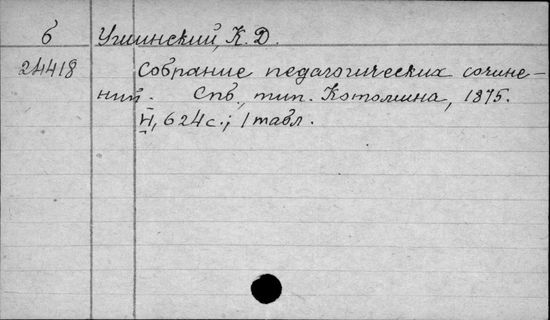 б Ушинский, К. Д.
24418 Собрание педагогических сочине-
ний. Спб., тип. Котомина, 1875.
VI, 624 с.; 1 табл.